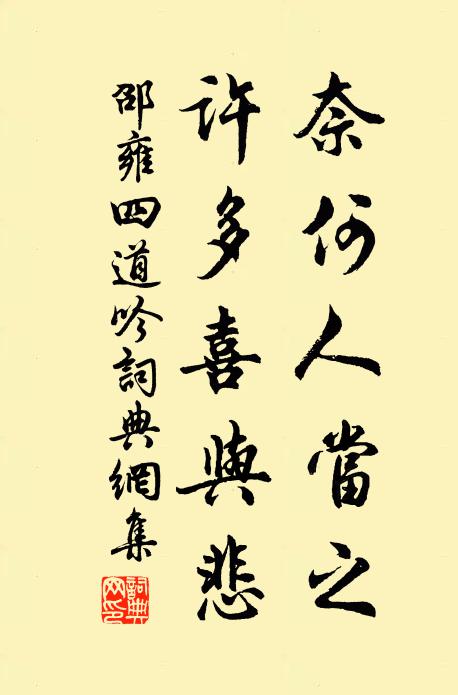 奈何人當之
許多喜與悲
邵雍四道吟詞典網集
詞典網印